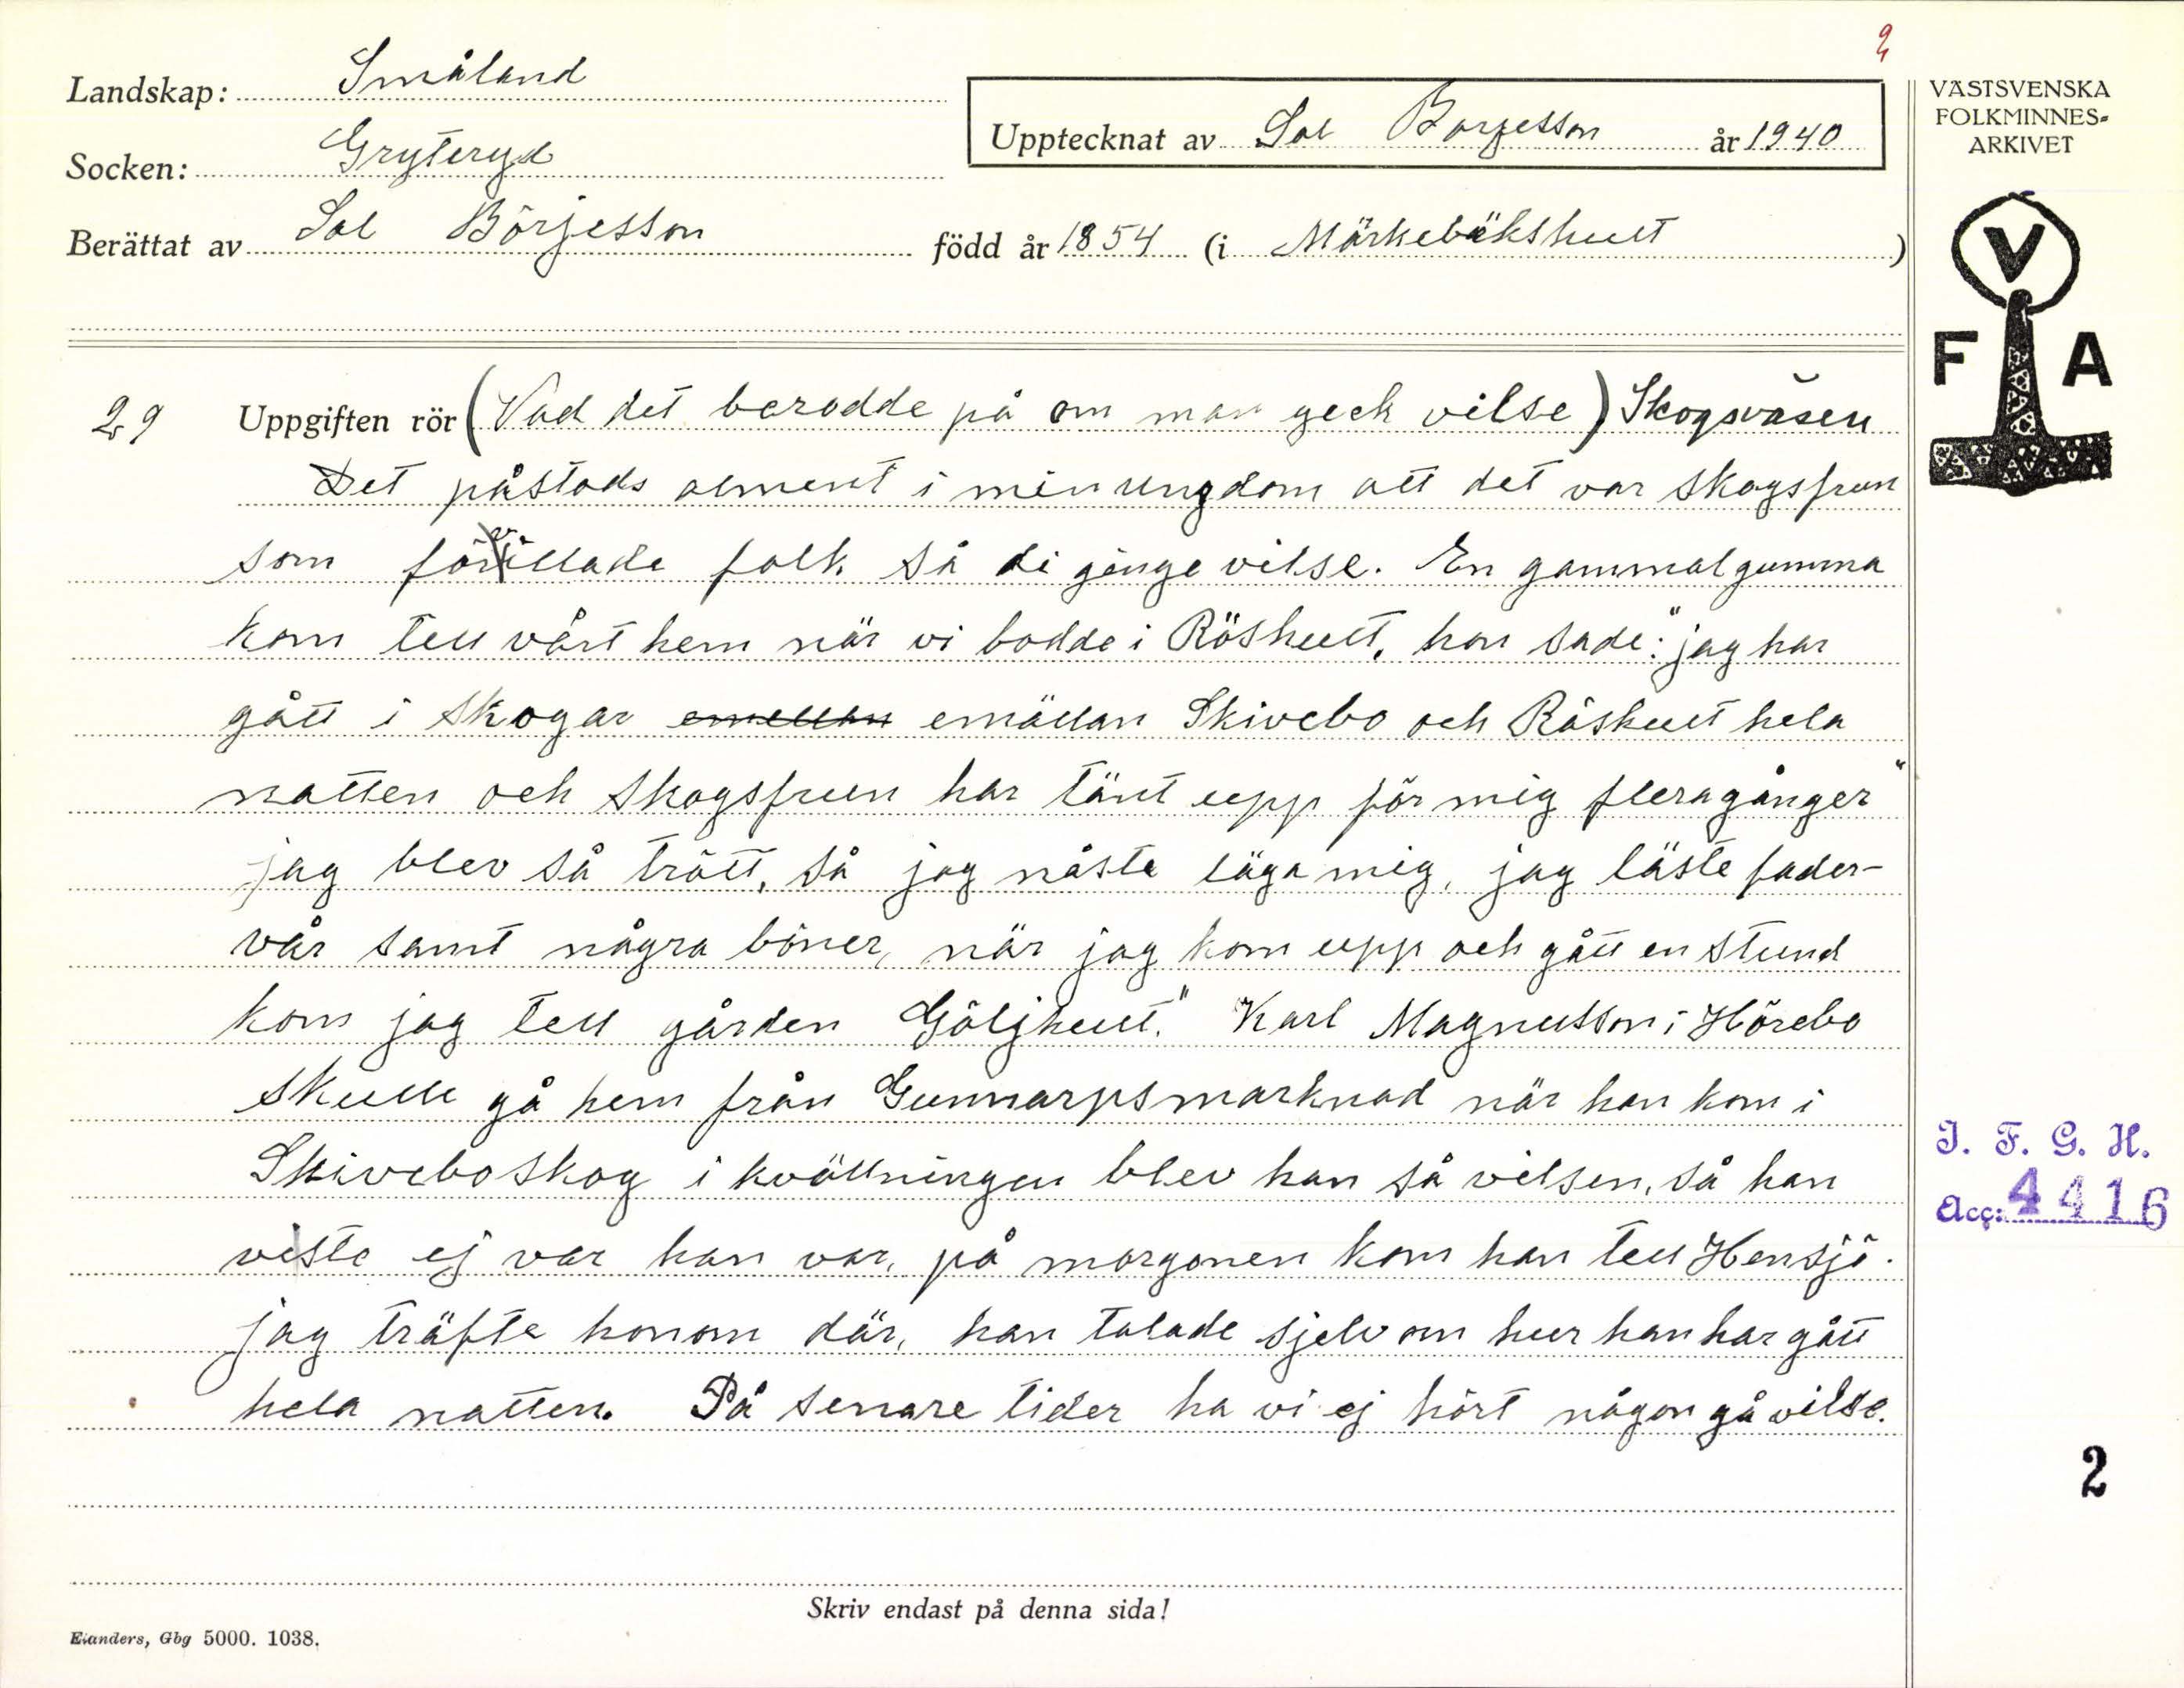 2
Landskap: Småland
Socken: Gryteryd
Berättat av Sal Börjesson född år 1854 (i Mörkebäkshult)
Upptecknat av Sal Borjesson år 1940
VÄSTSVENSKA
FOLKMINNES-
ARKIVET
V
F A
29 Uppgiften rör (Vad det berodde på om man geck vilse) Skogsväsen
Det påstods alment i min ungdom att det var skogsfrun
som förvillade folk så di ginge vilse. En gammal gumma
kom tell vårt hem när vi bodde i Röshult, hon sade: "jag har
gått i skogar emellan emällan Skivebo och Råshult hela
natten och skogsfrun har tänt upp för mig fleragånger"
jag blev så trött, så jag måste läga mig, jag läste fader-
vår samt några böner, när jag kom upp och gått en stund
kom jag tell gården Göljhult." Karl Magnusson i Hörebo
skulle gå hem från Gunnarpsmarknad när han kom i
Skiveboskog i kvällningen blev han så vilsen, så han
viste ej var han var, på morgonen kom han tell Hensjö.
jag träfte honom där, han talade sjelv om hur han har gått
hela natten. På senare tider ha vi ej hört någon gå vilse.
I. F. G. H.
Acc: 4416
2
Skriv endast på denna sida!
Elanders, Gbg 5000. 1038.